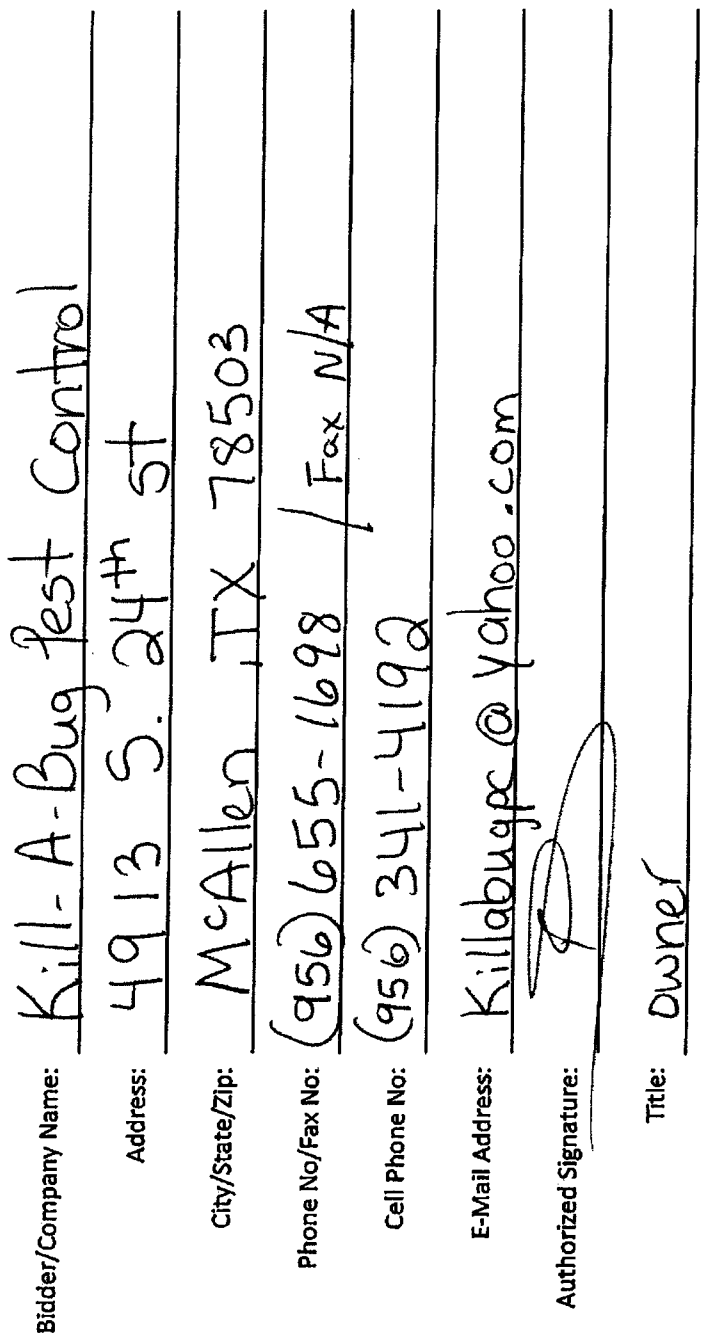 Bidder/Company Name: Kill-A-Bug Pest Control
Address: 4913 S. 24th St
City/State/Zip: McAllen, TX 78503
Phone No/Fax No: (956) 655-1698 / Fax N/A
Cell Phone No: (956) 341-4192
E-Mail Address: Killabugpc@yahoo.com
Authorized Signature:
Title: owner